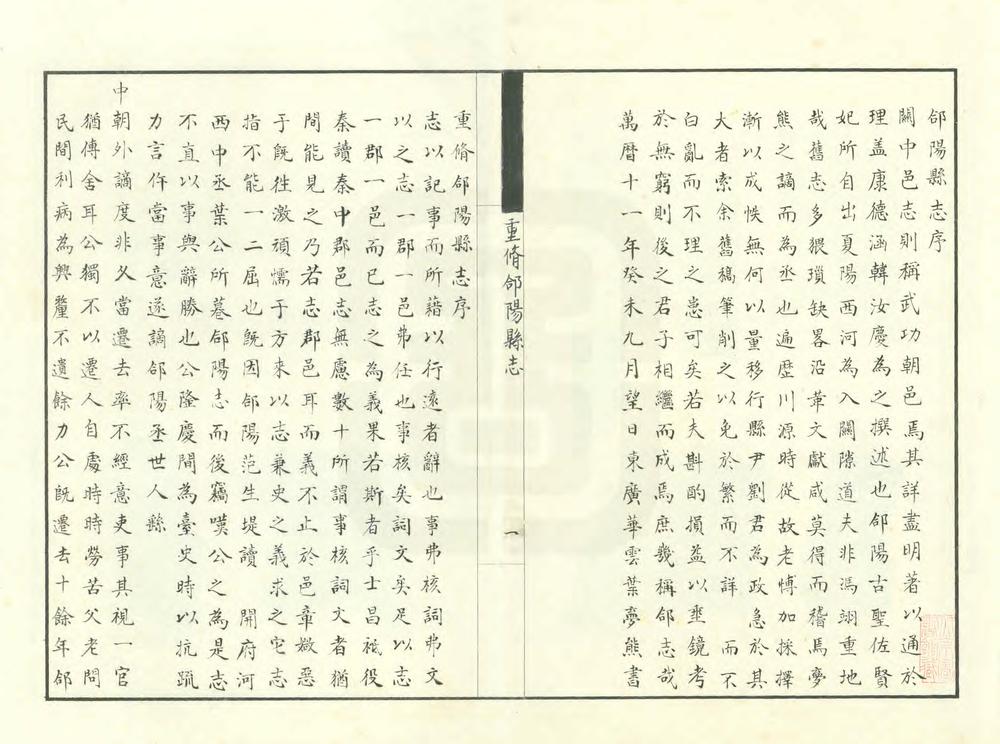 郃陽縣志序
關中邑志則稱武功朝邑焉其詳盡明著以通於
理盖康德涵韓汝慶為之撰述也郃陽古聖佐賢
妃所自出夏陽西河為入關隙道夫非馮翊重地
哉舊志多猥瑣缺畧沿革文獻咸莫得而稽焉夢
熊之謫而為丞也遍歷川源時從故老愽加採擇
漸以成帙無何以量移行縣尹劉君為政急於其
大者索余舊稿筆削之以免於繁而不詳 而不
白亂而不理之患可矣若夫斟酌損益以埀鏡考
於無窮則後之君子相繼而成焉庶幾稱郃志哉
萬曆十一年癸未九月望日東廣華雲葉夢熊書
重脩郃陽縣志
一
重脩郃陽縣志序
志以記事而所藉以行遠者辭也事弗核詞弗文
以之志一郡一邑弗任也事核矣詞文矣足以志
一郡一邑而已志之為義果若斯者乎士昌祗役
秦讀秦中郡邑志無慮數十所謂事核詞文者猶
間能見之乃若志郡邑耳而義不止於邑章媺惡
于既徃激頑懦于方來以志兼史之義求之它志
指不能一二屈也既因郃陽范生堤讀 開府河
西中丞葉公所纂郃陽志而後竊嘆公之為是志
不直以事與辭勝也公隆慶間為臺史時以抗疏
力言仵當事意遂謫郃陽丞世人繇
中朝外謫度非久當遷去率不經意吏事其視一官
猶傳舍耳公獨不以遷人自處時時勞苦父老問
民間利病為興釐不遺餘力公既遷去十餘年郃